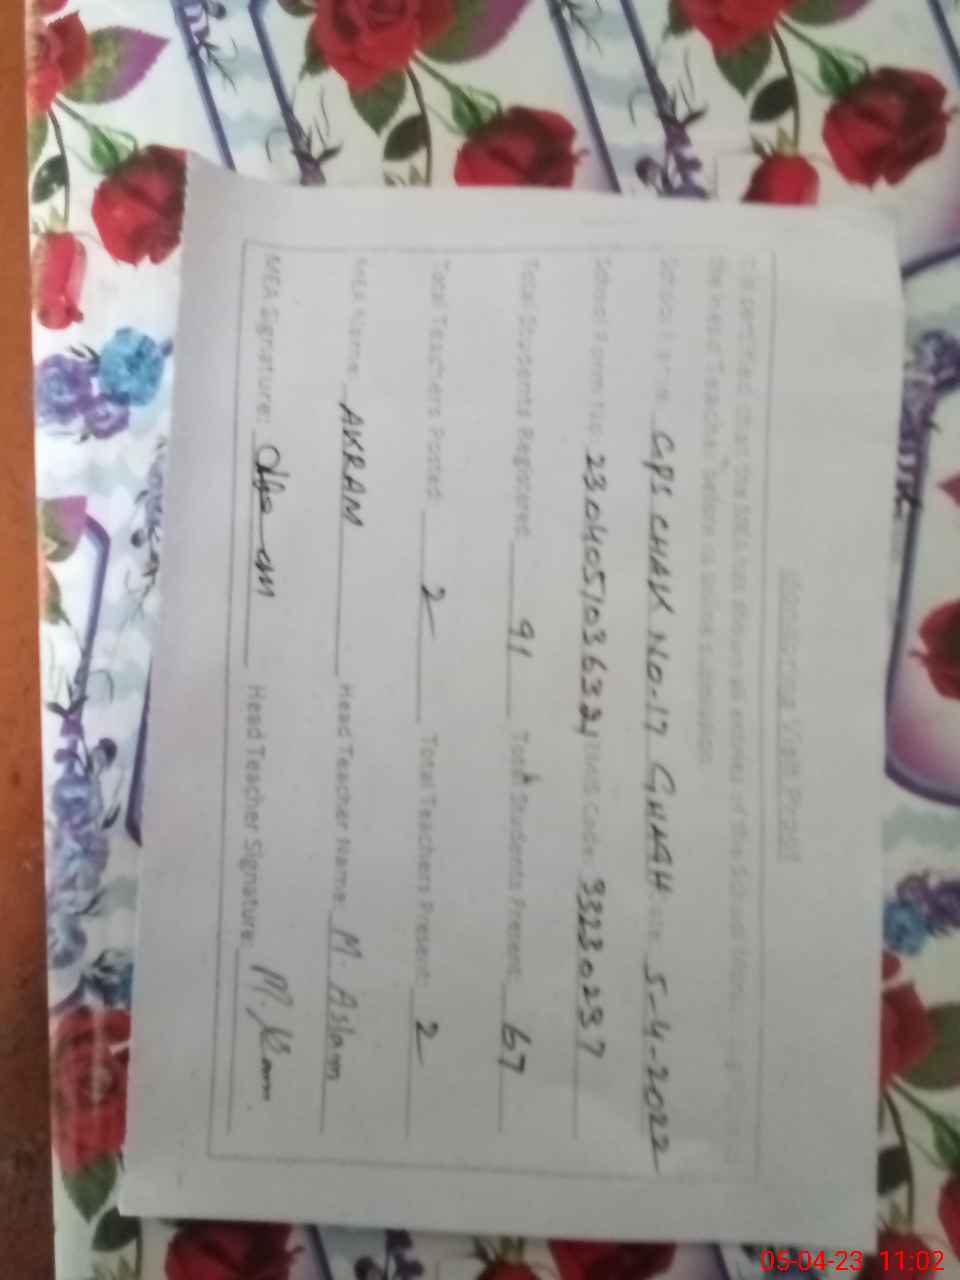 Monitoring Visit Proof
It is certified that the MEA has shown all entries of the School
the Head Teacher before its online submission.
School Name: GPS CHAK NO-17 GHAGH Date: 5-4-2022
School Form No: 23040510363 EMIS Code: 33230237
Total Students Registered: 91 Total Students Present: 67
Total Teachers Posted: 2 Total Teachers Present: 2
MEA Name: AKRAM Head Teacher Name: M. Aslam
MEA Signature: Head Teacher Signature:
05-04-23 11:02